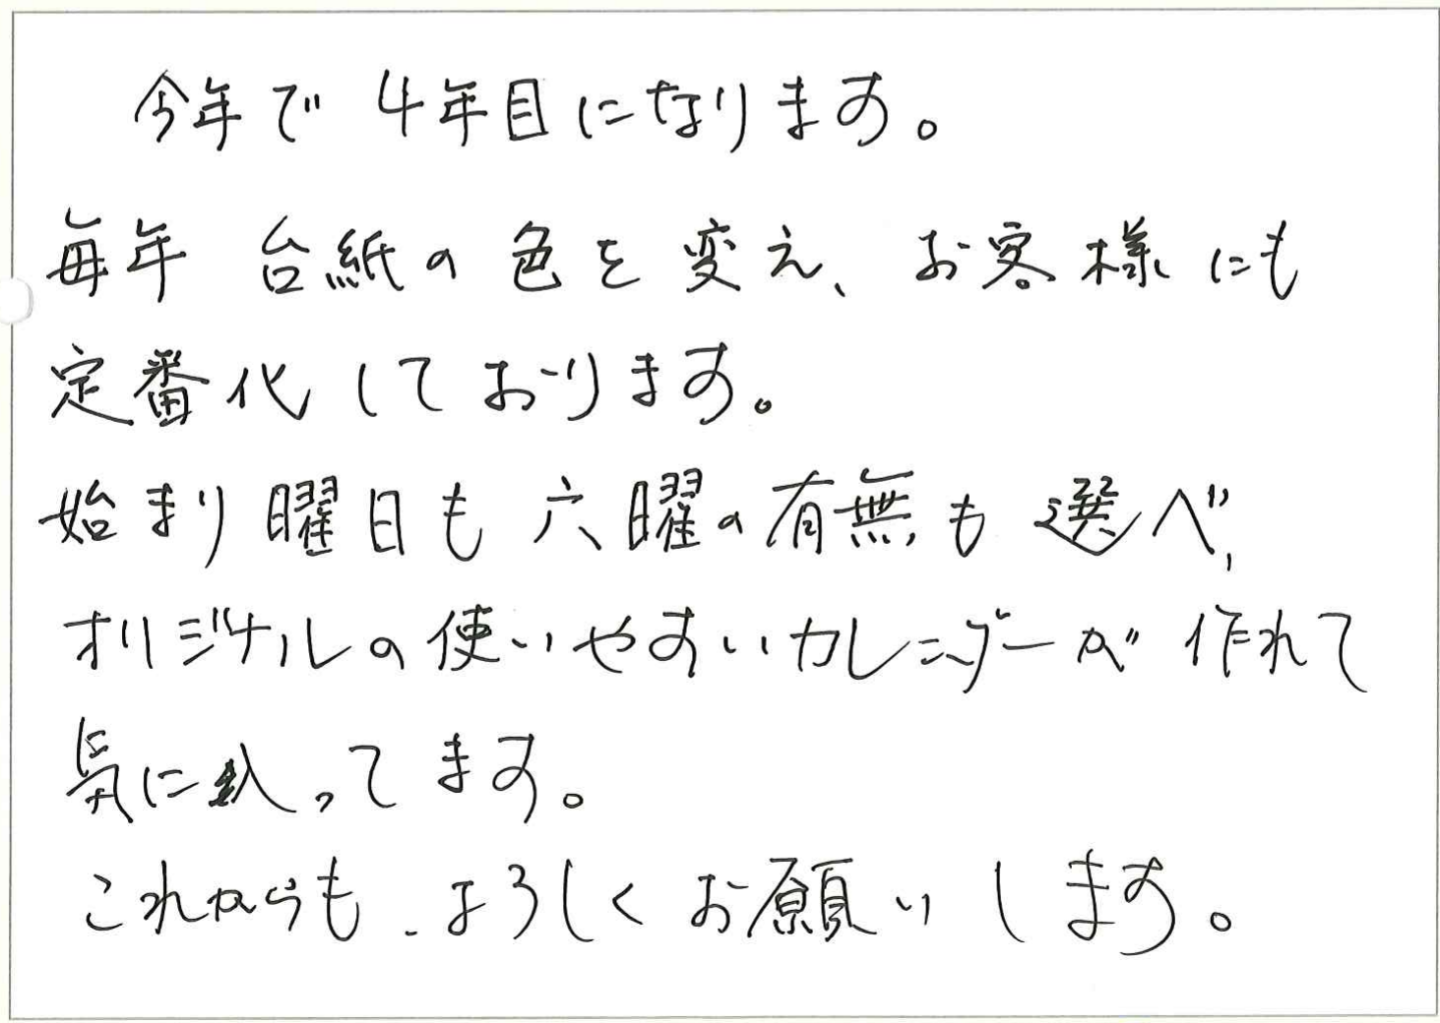 今年で4年目になります。
毎年 台紙の色を変え、お客様にも
定番化しております。
始まり曜日も六曜の有無も選べ、
オリジナルの使いやすいカレンダーが作れて
気に入ってます。
これからも、よろしくお願いします。